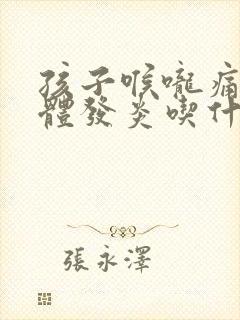 孩子喉嚨痛
體發炎喫什
張永澤